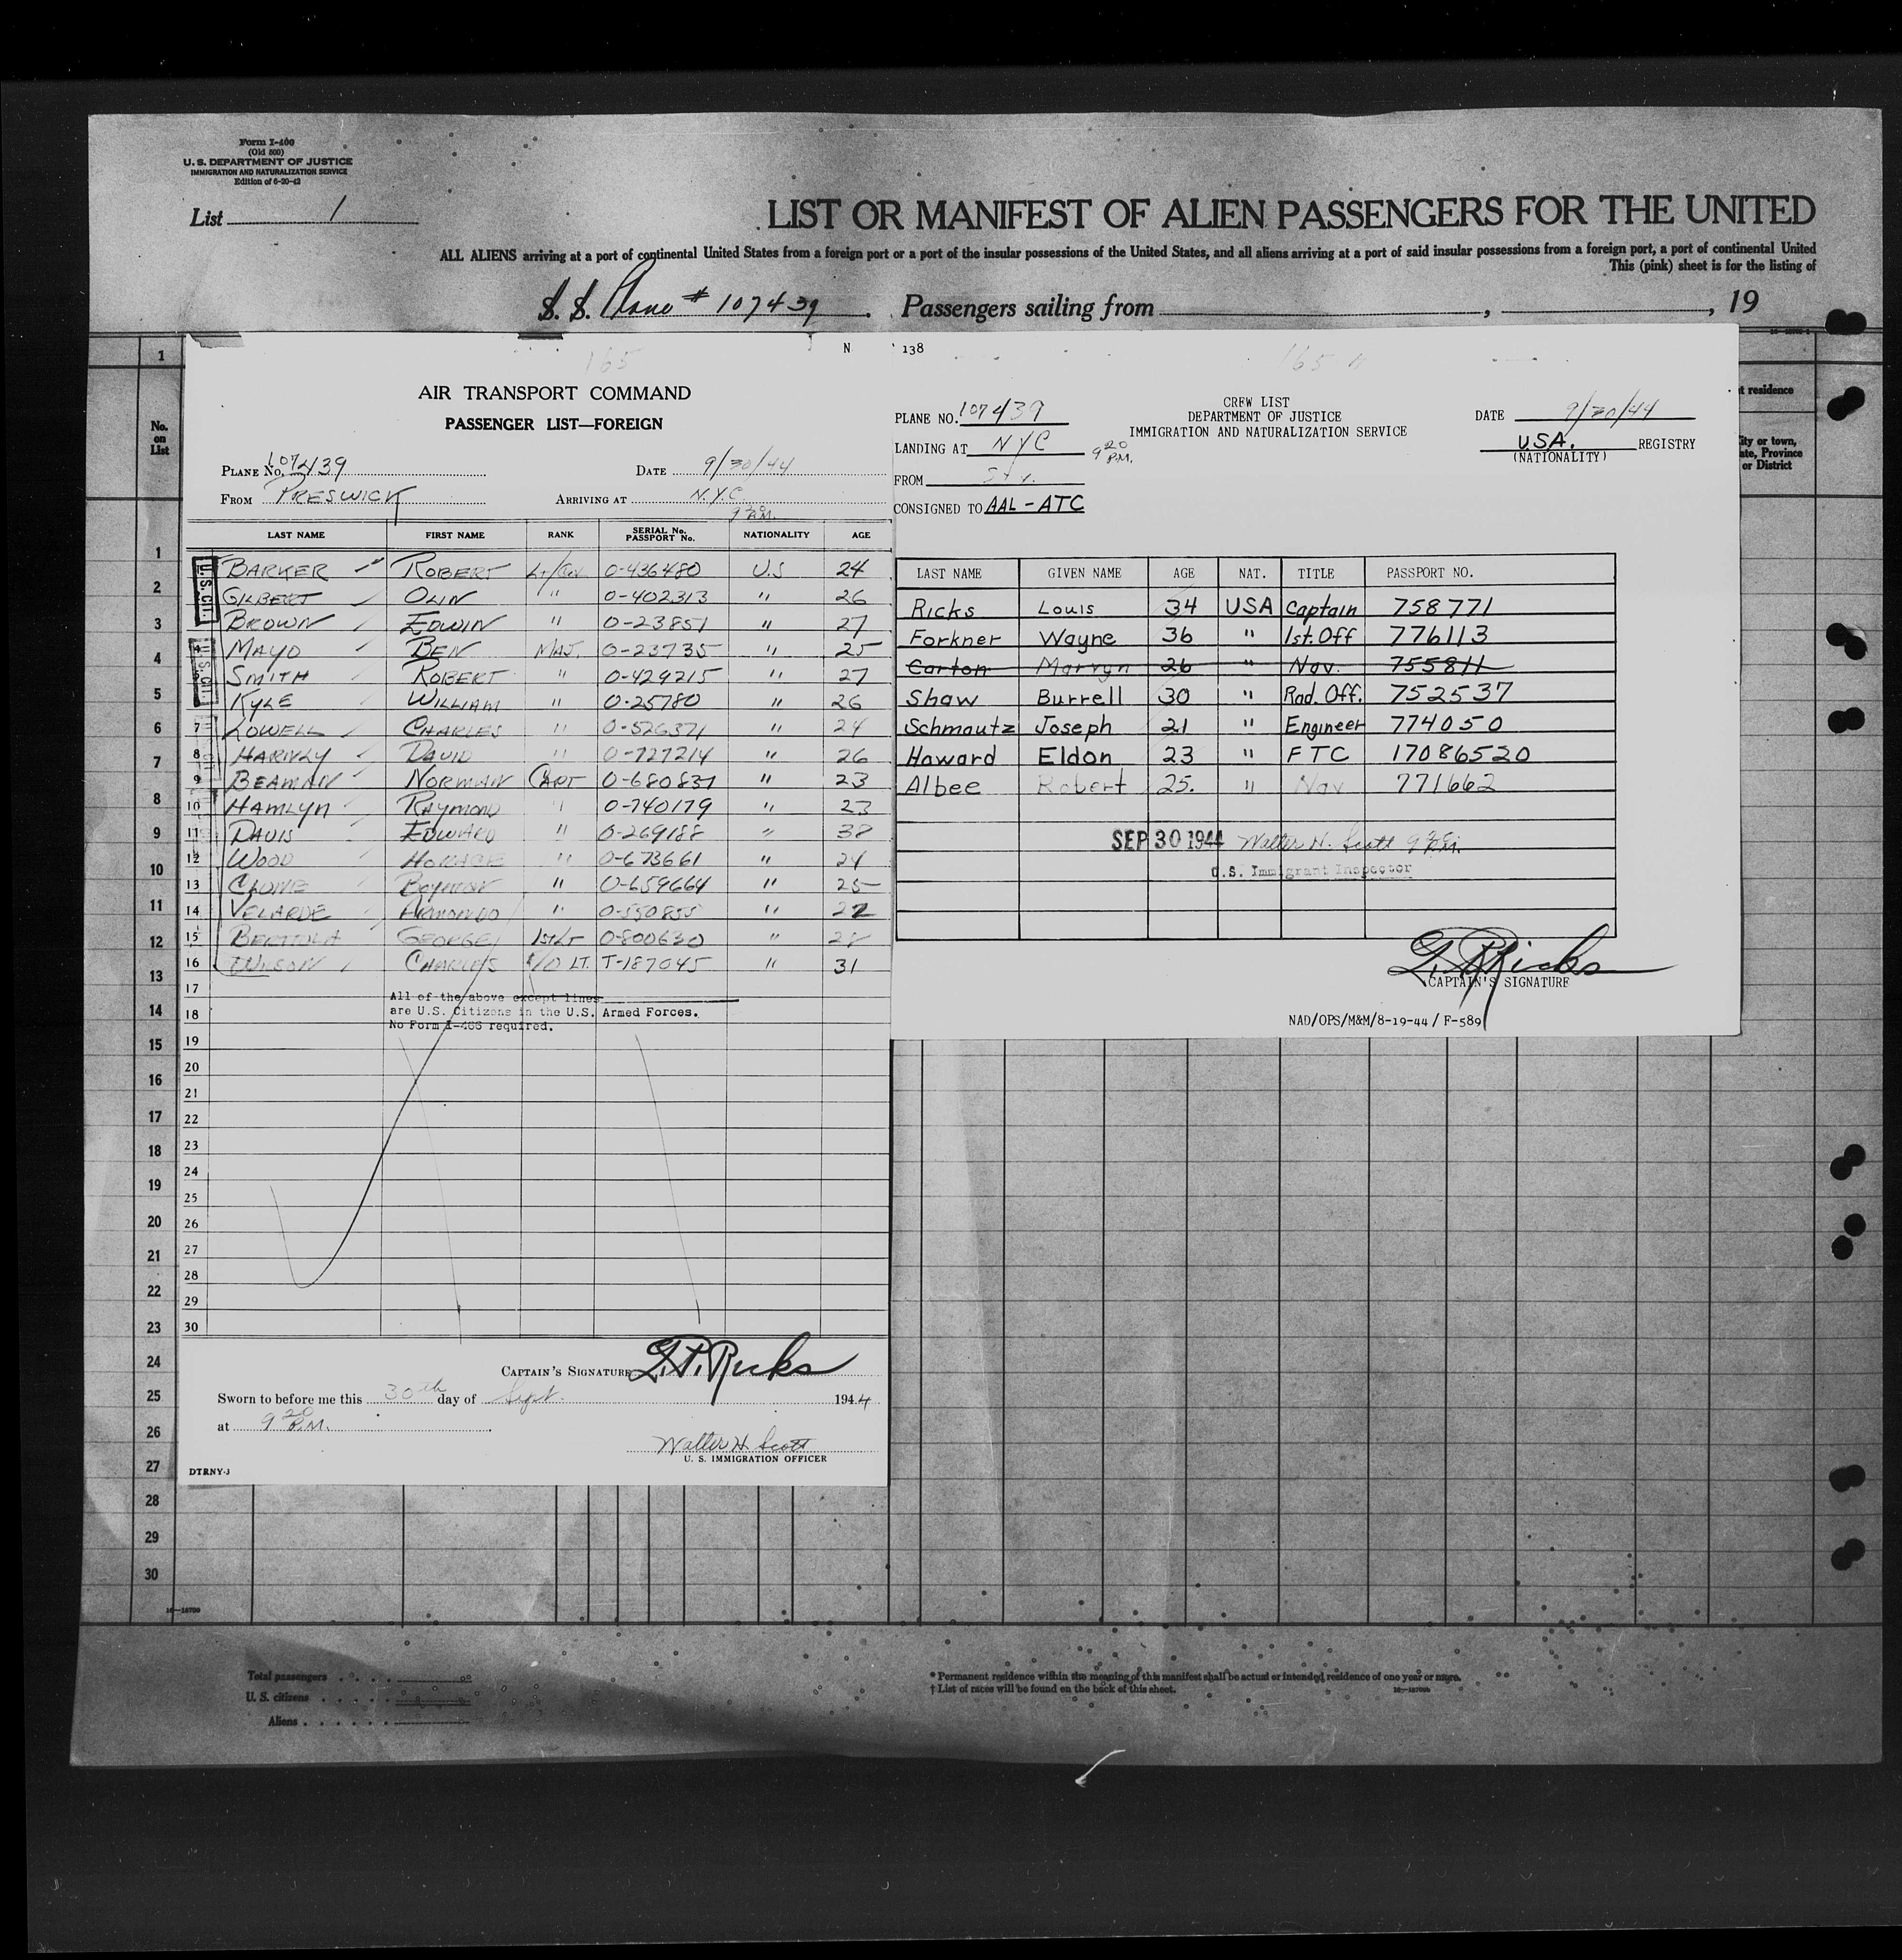 Form I-400
(Old 500)
U. S. DEPARTMENT OF JUSTICE
IMMIGRATION AND NATURALIZATION SERVICE
Edition of 6-20-42
List 1
LIST OR MANIFEST OF ALIEN PASSENGERS FOR THE UNITED
ALL ALIENS arriving at a port of continental United States from a foreign port or a port of the insular possessions of the United States, and all aliens arriving at a port of said insular possessions from a foreign port, a port of continental United
This (pink) sheet is for the listing of
S. S. Plane # 107439. Passengers sailing from , , 19
1
No. on List
1
2
3
4
5
6
7
8
9
10
11
12
13
14
15
16
17
18
19
20
21
22
23
24
25
26
27
28
29
30
165
N
AIR TRANSPORT COMMAND
PASSENGER LIST—FOREIGN
PLANE No. 107439 DATE 9/30/44
FROM PRESWICK ARRIVING AT N.Y.C.
9 20 P.M.
LAST NAME FIRST NAME RANK SERIAL No. PASSPORT No. NATIONALITY AGE
U. S. CIT.
U. S. CIT.
BARKER ROBERT Lt/Col 0-436480 U.S 24
GILBERT OLIN " 0-402313 " 26
BROWN EDWIN " 0-23851 " 27
MAYO BEN MAJ. 0-23735 " 25
SMITH ROBERT " 0-429215 " 27
KYLE WILLIAM " 0-25780 " 26
7 LOWELL CHARLES " 0-526371 " 24
8 DAVID " 0-727214 " 26
9 BEAMAN NORMAN CAPT 0-680837 " 23
10 HAMLYN RAYMOND " 0-740179 " 23
11 DAVIS EDWARD " 0-269188 " 38
12 WOOD HORACE " 0-673661 " 24
13 " 0-659664 " 25
14 VELARDE ARMONDO " 0-550855 " 22
15 BERTTOLA GEORGE 1st Lt 0-800630 " 28
16 WILSON CHARLES F/O LT. T-187045 " 31
17
All of the above except lines
18 are U.S. Citizens in the U.S. Armed Forces.
No Form I-466 required.
19
20
21
22
23
24
25
26
27
28
29
30
CAPTAIN'S SIGNATURE L. P. Ricks
Sworn to before me this 30th day of Sept. 1944
at 9 20 P.M.
Walter H. Scott
U. S. IMMIGRATION OFFICER
DTRNY-J
138
165
CREW LIST
DEPARTMENT OF JUSTICE
IMMIGRATION AND NATURALIZATION SERVICE
PLANE NO. 107439
LANDING AT NYC 9 20 P.M.
FROM
CONSIGNED TO AAL-ATC
DATE 9/30/44
U.S.A. REGISTRY
(NATIONALITY)
LAST NAME GIVEN NAME AGE NAT. TITLE PASSPORT NO.
Ricks Louis 34 USA Captain 758771
Forkner Wayne 36 " 1st. Off 776113
Carton Marvyn 26 " Nav. 755811
Shaw Burrell 30 " Rad. Off. 752537
Schmautz Joseph 21 " Engineer 774050
Howard Eldon 23 " FTC 17086520
Albee Robert 25. " Nav 771662
SEP 30 1944 Walter H. Scott 9 20 P.M.
U.S. Immigrant Inspector
L. P. Ricks
CAPTAIN'S SIGNATURE
NAD/OPS/M&M/8-19-44 / F-589
t residence
ity or town,
ate, Province
or District
16—18700
Total passengers
U. S. citizens
Aliens
* Permanent residence within the meaning of this manifest shall be actual or intended residence of one year or more.
† List of races will be found on the back of this sheet.